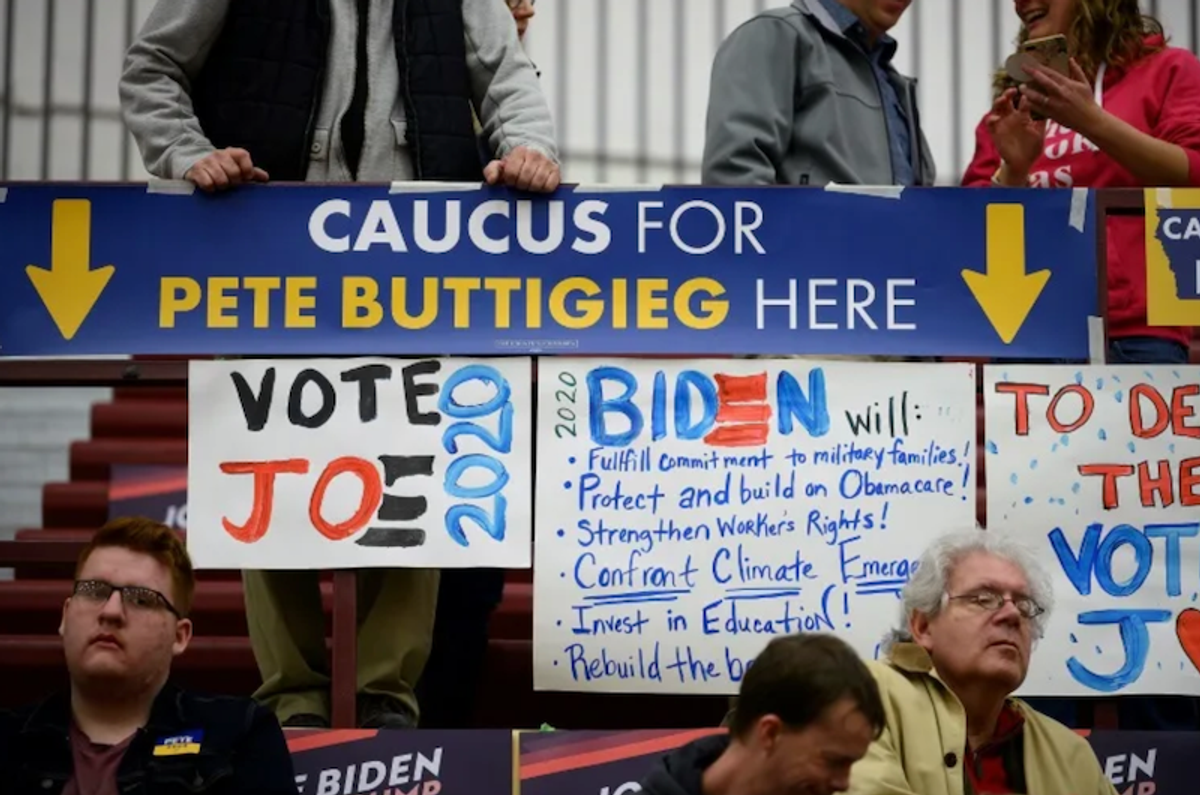 CAUCUS FOR
PETE BUTTIGIEG HERE
CA
VOTE
JOE
2020
2020
BIDEN will:
• Fullfill commitment to military families!
• Protect and build on Obamacare!
• Strengthen Worker's Rights!
• Confront Climate Emerge
• Invest in Education!
• Rebuild the
TO DE
THE
VOT
J
PETE
BIDEN
EN